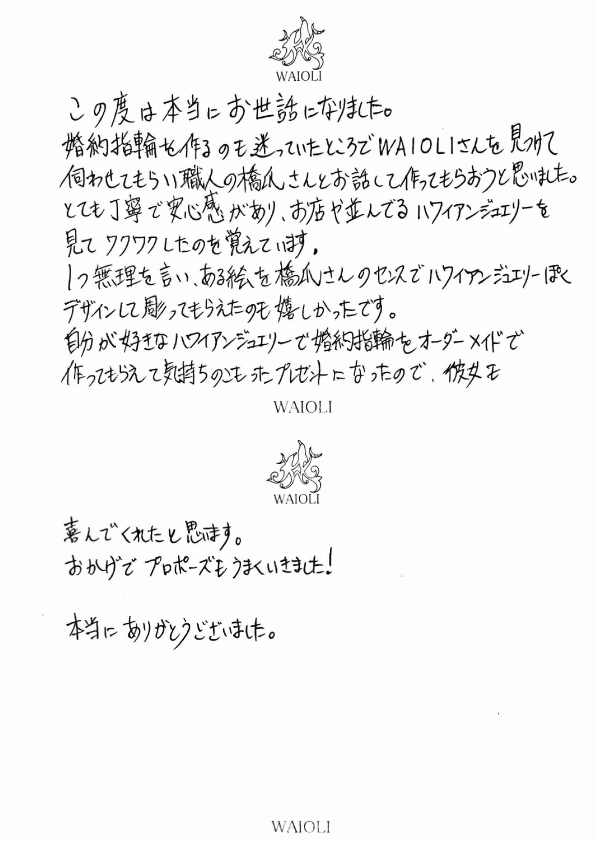 WAIOLI
この度は本当にお世話になりました。
婚約指輪を作るのも迷っていたところでWAIOLIさんを見つけて
伺わせてもらい職人の橋爪さんとお話して作ってもらおうと思いました。
とても丁寧で安心感があり、お店や並んでるハワイアンジュエリーを
見てワクワクしたのを覚えています。
1つ無理を言い、ある絵を橋爪さんのセンスでハワイアンジュエリーぽく
デザインして彫ってもらえたのも嬉しかったです。
自分が好きなハワイアンジュエリーで婚約指輪をオーダーメイドで
作ってもらえて気持ちのこもったプレゼントになったので、彼女も
WAIOLI
WAIOLI
喜んでくれたと思います。
おかげでプロポーズもうまくいきました!
本当にありがとうございました。
WAIOLI